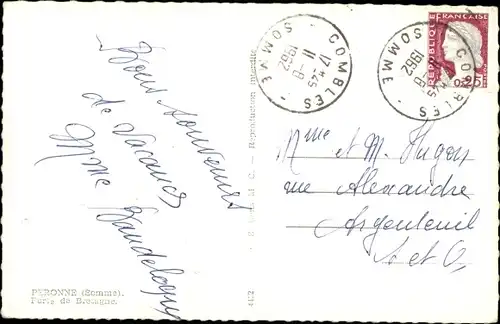 Bons souvenirs
de vacances
Mme Vandelogue
PERONNE (Somme).
Porte de Bretagne.
Reproduction interdite
COMBLES
SOMME
17 H 25
11 -8
1962
COMBLES
SOMME
17 H 25
11 -8
1962
REPUBLIQUE FRANÇAISE
0,25
Mme et M. Hugon
rue Alexandre
Argenteuil
S et O.